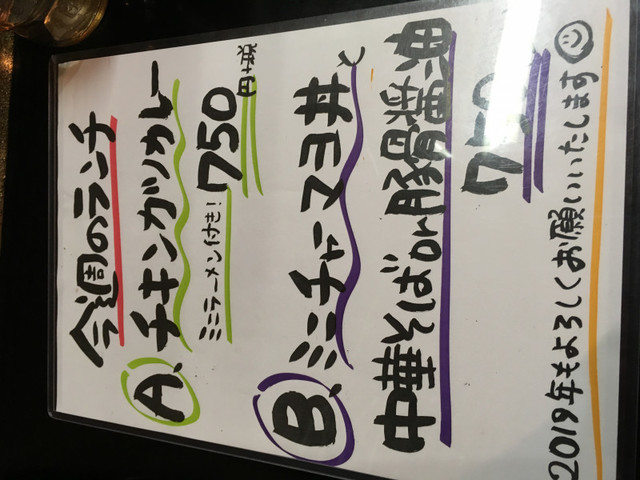 今週のランチ
A. チキンカツカレー
ミニラーメン付き! 750円+税
B. ミニチャーマヨ丼と
中華そばor豚骨醤油
750
2019年もよろしくお願いいたします